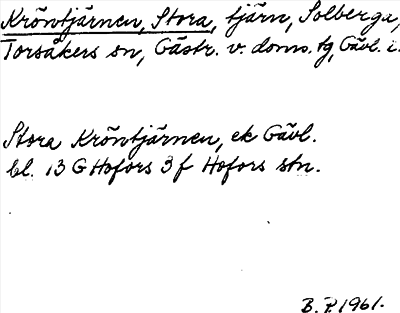 Kröntjärnen, Stora, tjärn, Solberga,
Torsåkers sn, Gästr. v. doms. tg, Gävl. l.
Stora Kröntjärnen, ek Gävl.
bl. 13 G Hofors 3 f Hofors stn.
B. P. 1961.